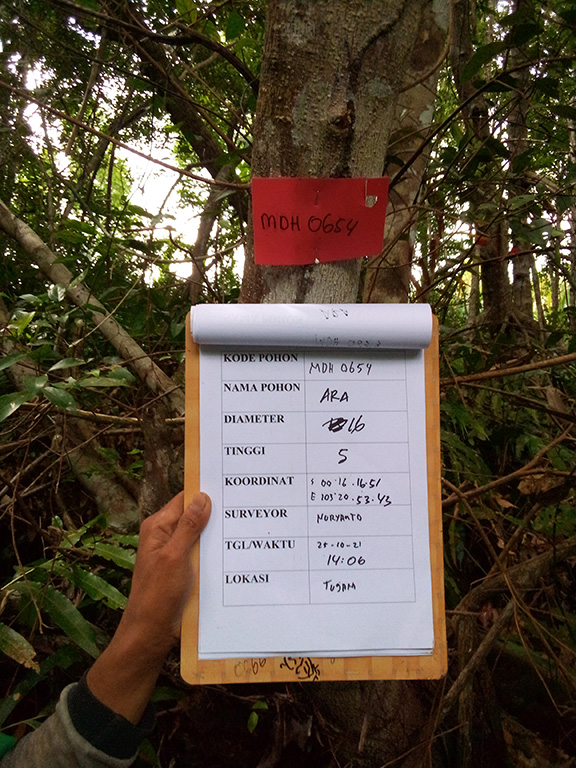 MDH 0654
KODE POHON MDH 0654
NAMA POHON ARA
DIAMETER 16
TINGGI 5
KOORDINAT S 00°.16.16.51
E 103°20.53.43
SURVEYOR NURYANTO
TGL/WAKTU 25-10-21
14:06
LOKASI TUSAM